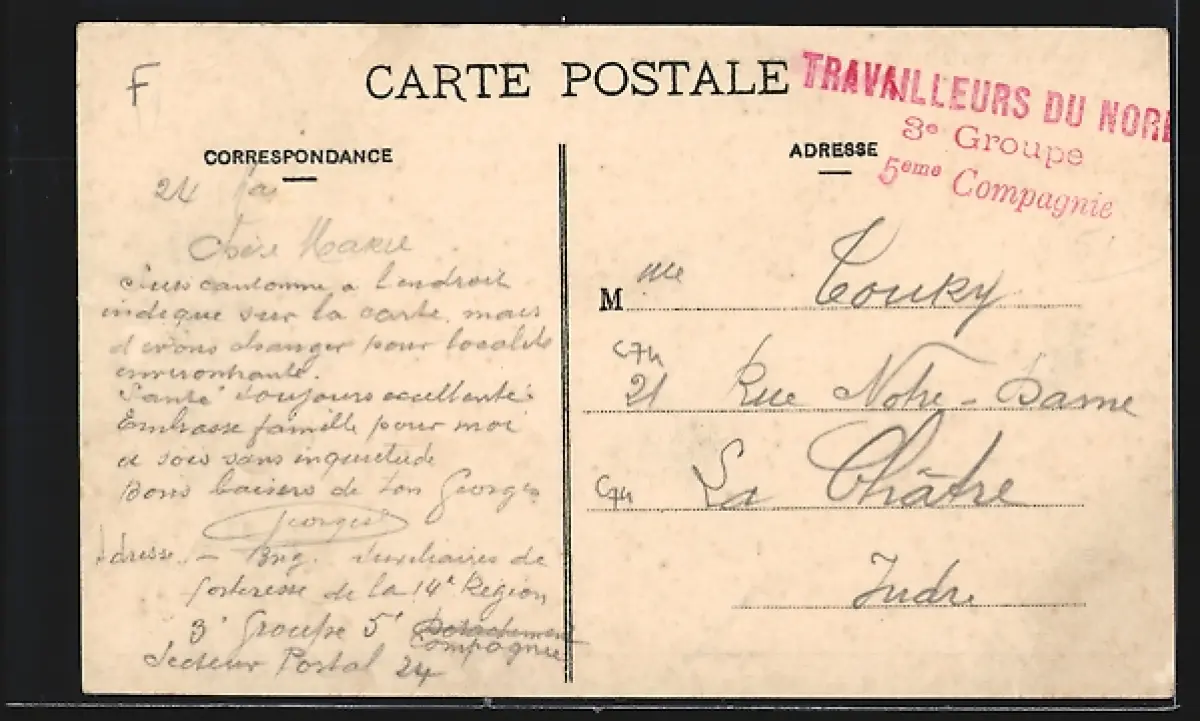 F
CARTE POSTALE
TRAVAILLEURS DU NORD
3e Groupe
5eme Compagnie
CORRESPONDANCE
24
Chère Marie
Suis cantonné a l'endroit
indiqué sur la carte, mais
devons changer pour localité
environnante.
Santé toujours excellente.
Embrasse famille pour moi
et sois sans inquietude
Bons baisers de ton Georges
Georges
Adresse. - Brg. Auxiliaires de
forteresse de la 14e Région
3e Groupe 5e Detachement
Compagnie
Secteur Postal 24
ADRESSE
M me Touky
C74
21 Rue Notre-Dame
C74 La Châtre
Indre